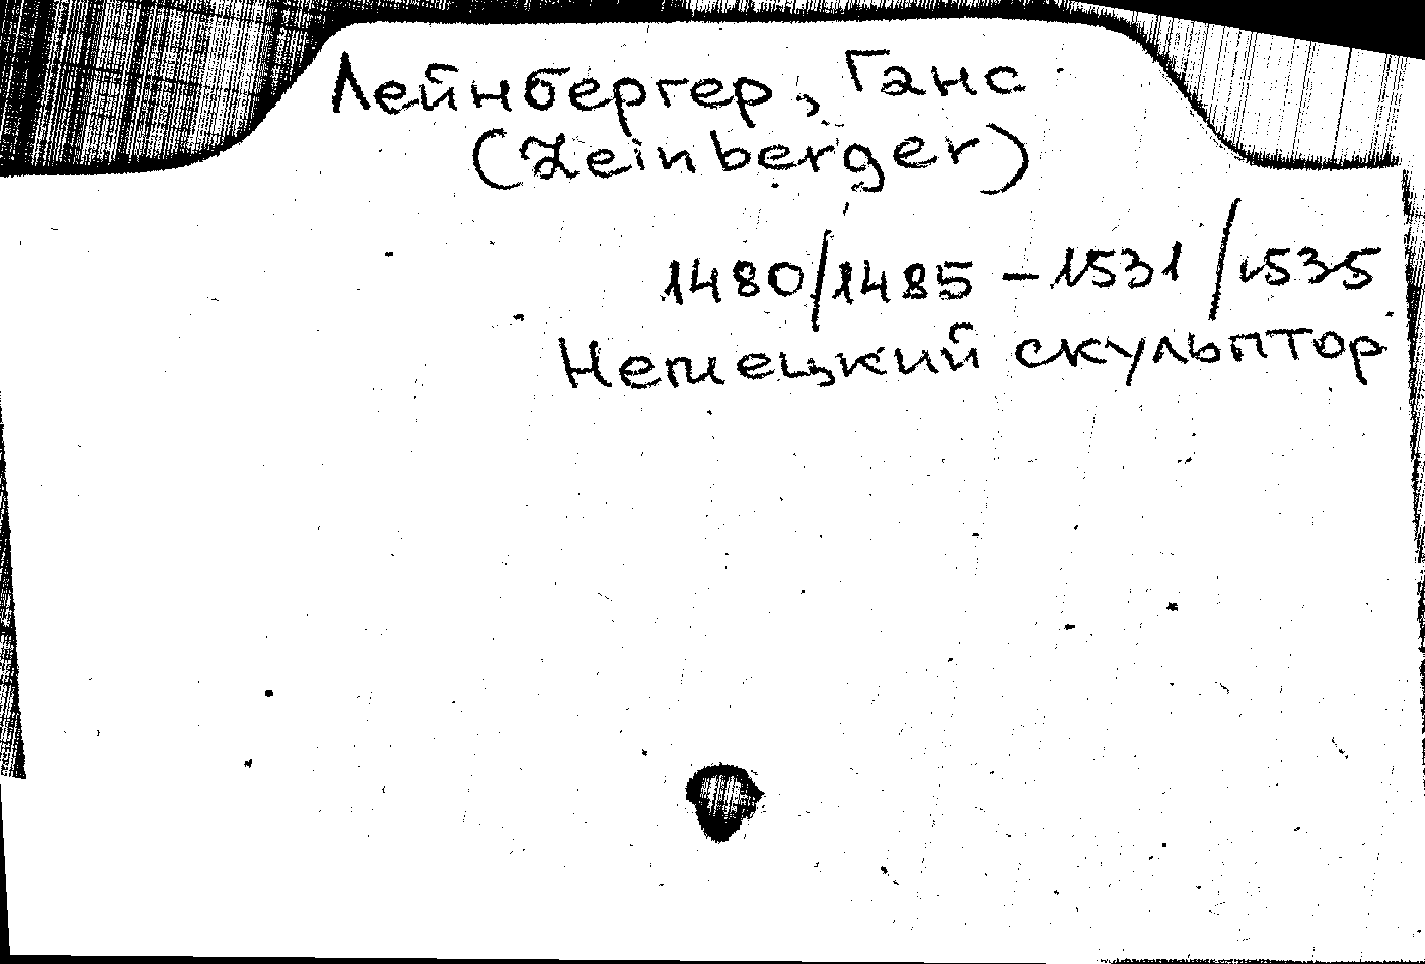 Лейнбергер, Ганс
(Leinberger)
1480/1485 – 1531/1535
Немецкий скульптор